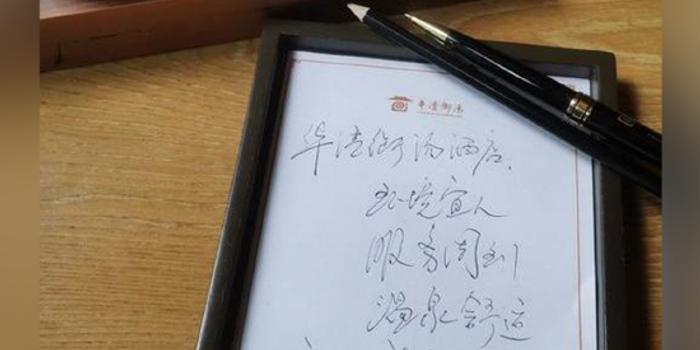 华清御汤
华清御汤酒店.
环境宜人
服务周到
温泉舒适